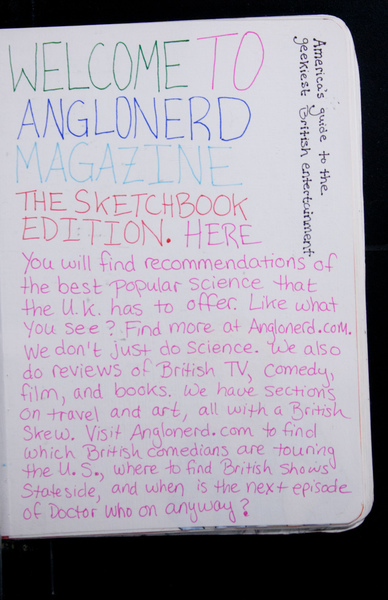 WELCOME TO
ANGLONERD
MAGAZINE
THE SKETCHBOOK
EDITION. HERE
You will find recommendations of
the best popular science that
the U.K. has to offer. Like what
you see? Find more at Anglonerd.com.
We don't just do science. We also
do reviews of British TV, comedy,
film, and books. We have sections
on travel and art, all with a British
Skew. Visit Anglonerd.com to find
which British comedians are touring
the U.S., where to find British shows
Stateside, and when is the next episode
of Doctor Who on anyway?
America's guide to the
geekiest British entertainment